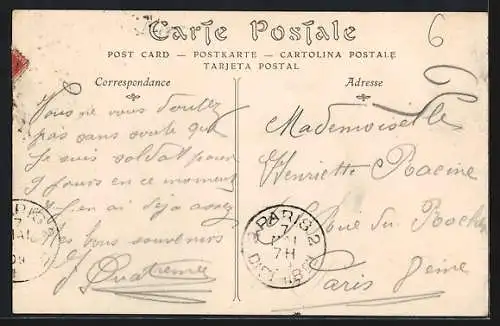 6
Carte Postale
POST CARD — POSTKARTE — CARTOLINA POSTALE
TARJETA POSTAL
Correspondance
Vous ne vous doutez
pas sans doute que
je suis soldat pour
9 jours en ce moment
j'en ai déjà assez
Mes bons souvenirs
Adresse
Mademoiselle
Henriette Racine
Rue du
Paris
PARIS
7
7H